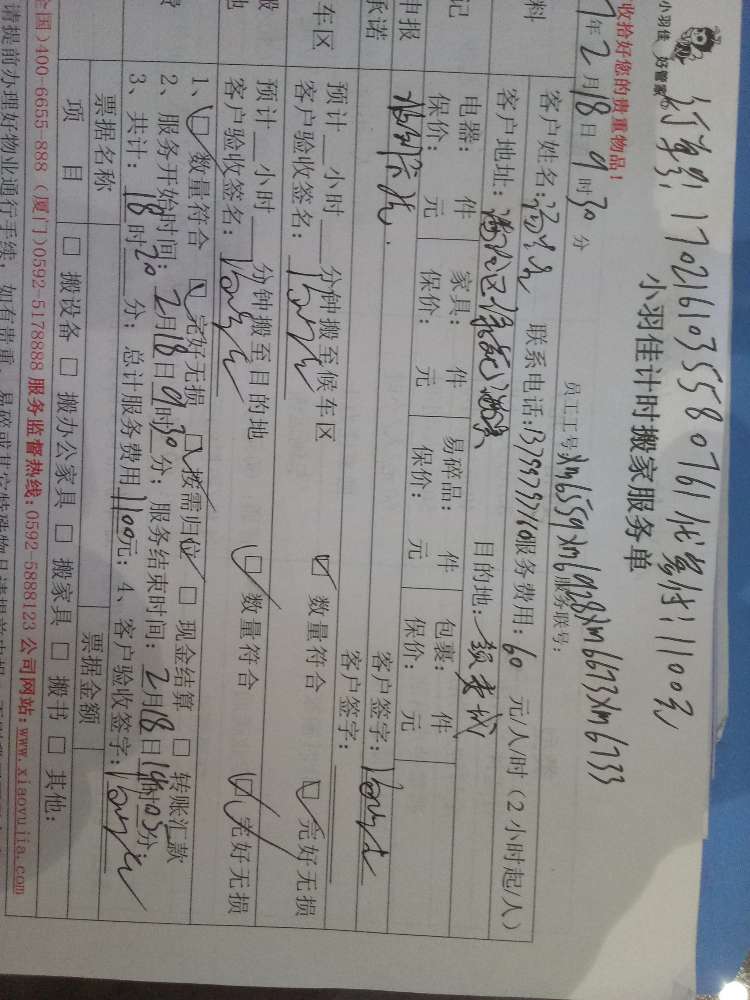 小羽佳 好管家
1702161035580761代客付:1100元
小羽佳计时搬家服务单
收拾好您的贵重物品!
7年2月18日9时30分 员工工号xm6559xm6928xm6673xm6733 服务联号:
料 客户姓名: 联系电话:13799797760服务费用:60元/人/时(2小时起/人)
客户地址: 目的地:
记 电器: 件 家具: 件 易碎品: 件 包裹: 件
保价: 元 保价: 元 保价: 元 保价: 元
申报 客户签字:
承诺 客户签字:
车区 预计 小时 分钟搬至候车区 数量符合 完好无损
客户验收签名:
般 预计 小时 分钟搬至目的地 数量符合 完好无损
地 客户验收签名:
1、 数量符合 完好无损 按需归位 现金结算 转账汇款
2、服务开始时间:2月18日9时30分;服务结束时间:2月18日19时03分;
3、共计:18时20分;总计服务费用1100元;4、客户验收签字:
票据名称 票据金额
项 目 搬设备 搬办公家具 搬家具 搬书 其他:
全国)400-6655-888(厦门)0592-5178888 服务监督热线:0592-5888123 公司网站:www.xiaoyujia.com
请提前办理好物业通行手续,如有贵重、易碎或其它特殊物品请提前申报